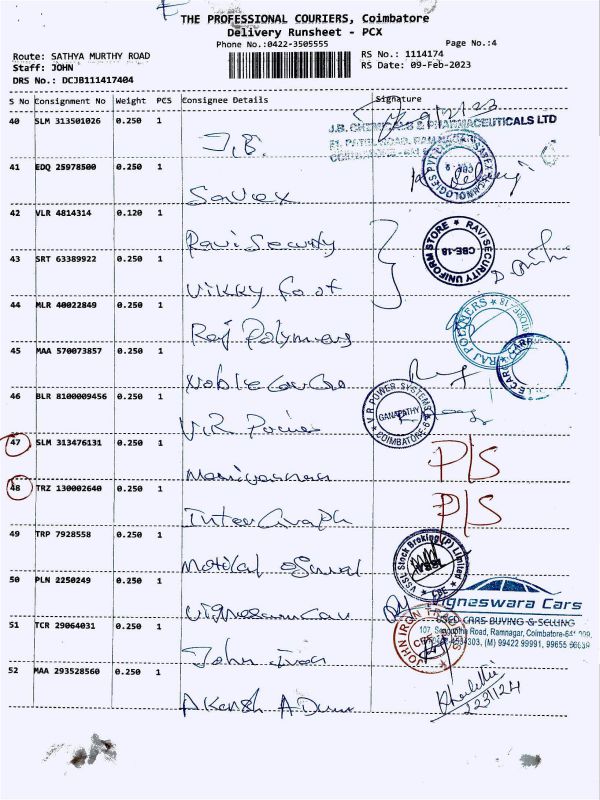 THE PROFESSIONAL COURIERS, Coimbatore
Delivery Runsheet - PCX
Phone No.:0422-3505555
Page No.:4
Route: SATHYA MURTHY ROAD
RS No.: 1114174
Staff: JOHN
RS Date: 09-Feb-2023
DRS No.: DCJB111417404
S No Consignment No Weight PCS Consignee Details Signature
40 SLM 313501026 0.250 1
J.B.
J.B. CHEMICALS & PHARMACEUTICALS LTD
41 EDQ 25978500 0.250 1
Savex
42 VLR 4814314 0.120 1
Ravi Security
RAVI SECURITY UNIFORM STORE
CBE-18
43 SRT 63389922 0.250 1
Vikky foot
44 MLR 40022849 0.250 1
Raj Polymers
RAJ POLYMERS
45 MAA 570073857 0.250 1
Noble CarCare
46 BLR 8100009456 0.250 1
V.R Power
V.R.POWER SYSTEMS
GANAPATHY
COIMBATORE-6
47 SLM 313476131 0.250 1
P/S
48 TRZ 130002640 0.250 1
Inter Graph
P/S
49 TRP 7928558 0.250 1
Motilal Oswal
VSSL Stock Broking (P) Limited
CBE
50 PLN 2250249 0.250 1
igneswara Cars
USED CARS BUYING & SELLING
Road, Ramnagar, Coimbatore-641 009.
(M) 99422 99991, 99655
51 TCR 29064031 0.250 1
John Iron
JOHN IRON TRADERS
52 MAA 293528560 0.250 1
Akansh